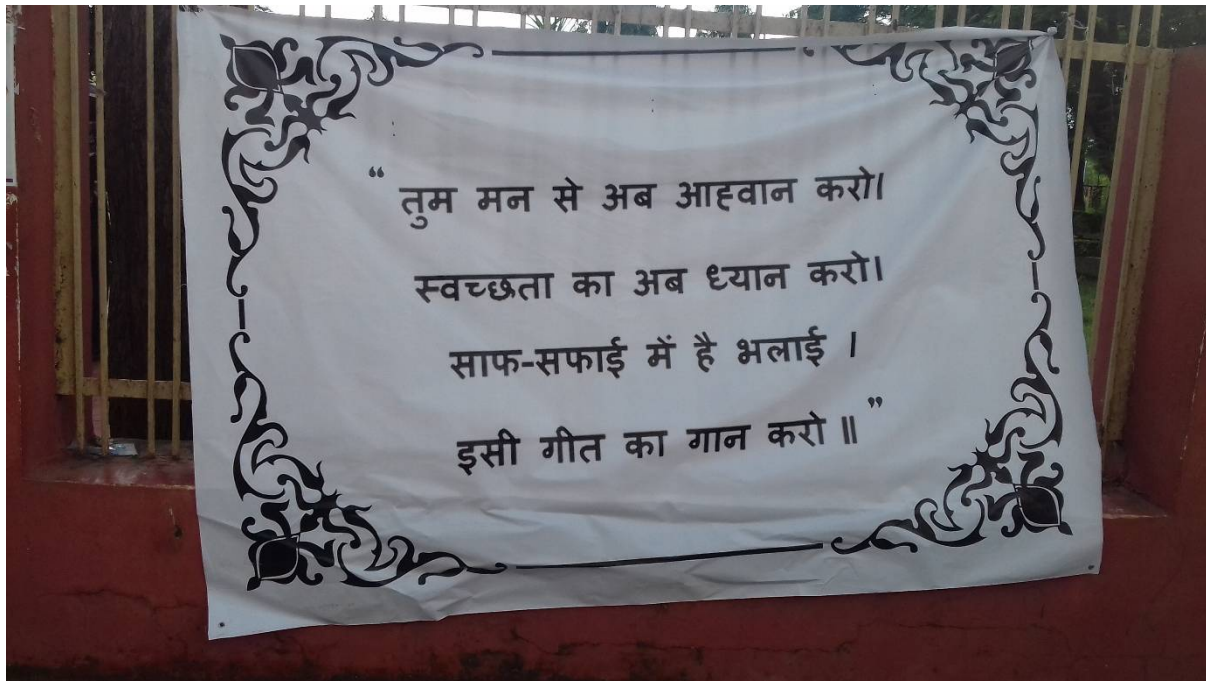 “ तुम मन से अब आह्वान करो।
स्वच्छता का अब ध्यान करो।
साफ-सफाई में है भलाई ।
इसी गीत का गान करो ॥ ”